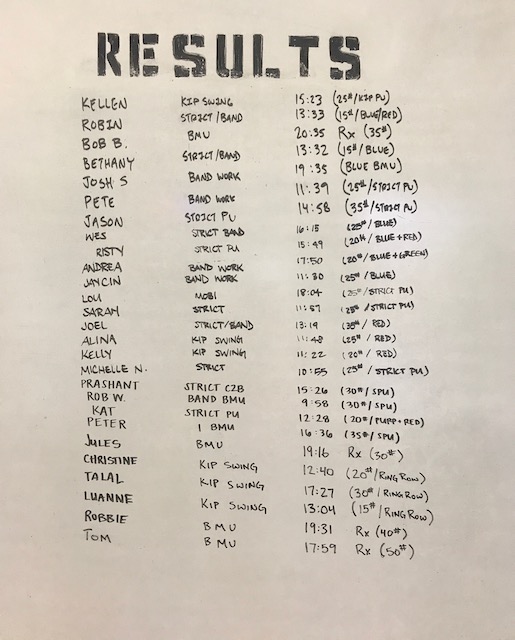 RESULTS
KELLEN KIP SWING 15:23 (25#/KIP PU)
ROBIN STRICT/BAND 13:33 (15#/BLUE/RED)
BOB B. BMU 20:35 Rx (35#)
BETHANY STRICT/BAND 13:32 (15#/BLUE)
JOSH S BAND WORK 19:35 (BLUE BMU)
PETE BAND WORK 11:39 (25#/STRICT PU)
JASON STRICT PU 14:58 (35#/STRICT PU)
WES STRICT BAND 16:15 (25#/BLUE)
RISTY STRICT PU 15:49 (20#/BLUE+RED)
ANDREA BAND WORK 17:50 (20#/BLUE+GREEN)
JAYCIN BAND WORK 11:30 (25#/BLUE)
LOU MOBI 18:04 (25#/STRICT PU)
SARAH STRICT 11:57 (25#/STRICT PU)
JOEL STRICT/BAND 13:19 (35#/RED)
ALINA KIP SWING 11:48 (25#/RED)
KELLY KIP SWING 11:22 (20#/RED)
MICHELLE N. STRICT 10:55 (25#/STRICT PU)
PRASHANT STRICT C2B 15:26 (30#/SPU)
ROB W. BAND BMU 9:58 (30#/SPU)
KAT STRICT PU 12:28 (20#/PURP+RED)
PETER 1 BMU 16:36 (35#/SPU)
JULES BMU 19:16 Rx (30#)
CHRISTINE KIP SWING 12:40 (20#/RING ROW)
TALAL KIP SWING 17:27 (30#/RING ROW)
LUANNE KIP SWING 13:04 (15#/RING ROW)
ROBBIE BMU 19:31 Rx (40#)
TOM BMU 17:59 Rx (50#)